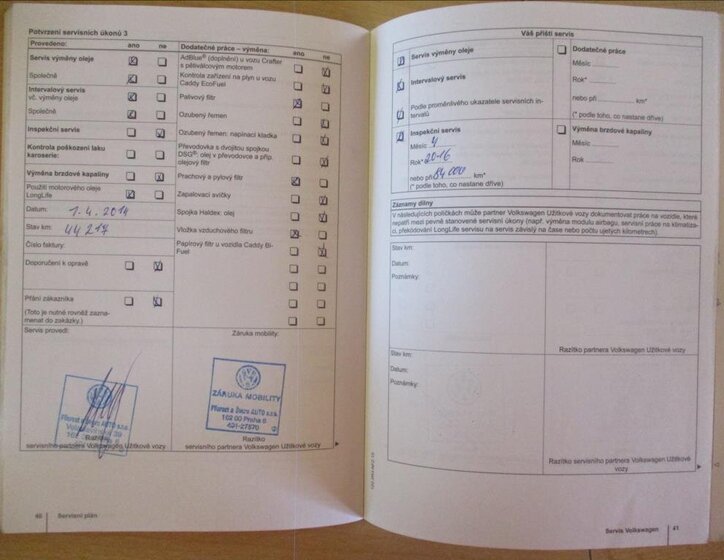 Potvrzení servisních úkonů 3
Provedeno: ano ne
Servis výměny oleje
Společně
Intervalový servis
vč. výměny oleje
Společně
Inspekční servis
Kontrola poškození laku
karoserie:
Výměna brzdové kapaliny
Použití motorového oleje
LongLife
Datum: 1.4.2014
Stav km: 44217
Číslo faktury:
Doporučení k opravě
Přání zákazníka
(Toto je nutné rovněž zazna-
menat do zakázky.)
Servis provedl:
Razítko
servisního partnera Volkswagen Užitkové vozy
Dodatečné práce – výměna: ano ne
AdBlue® (doplnění) u vozu Crafter
s pětiválcovým motorem
Kontrola zařízení na plyn u vozu
Caddy EcoFuel
Palivový filtr
Ozubený řemen
Ozubený řemen: napínací kladka
Převodovka s dvojitou spojkou
DSG®: olej v převodovce a příp.
olejový filtr
Prachový a pylový filtr
Zapalovací svíčky
Spojka Haldex: olej
Vložka vzduchového filtru
Papírový filtr u vozidla Caddy Bi-
Fuel
Záruka mobility:
ZÁRUKA MOBILITY
Přerost a Švorc AUTO s.r.o.
162 00 Praha 6
491-27870
Razítko
servisního partnera Volkswagen Užitkové vozy
40 Servisní plán
Váš příští servis
Servis výměny oleje
Intervalový servis
Podle proměnlivého ukazatele servisních in-
tervalů
Inspekční servis
Měsíc 4
Rok* 2016
nebo při 84000 km*
(* podle toho, co nastane dříve)
Dodatečné práce
Měsíc
Rok*
nebo při km*
(* podle toho, co nastane dříve)
Výměna brzdové kapaliny
Měsíc
Rok
Záznamy dílny
V následujících políčkách může partner Volkswagen Užitkové vozy dokumentovat práce na vozidle, které
nepatří mezi pevně stanovené servisní úkony (např. výměna modulu airbagu, servisní práce na klimatiza-
ci, překódování LongLife servisu na servis závislý na čase nebo počtu ujetých kilometrech).
Stav km:
Datum:
Poznámky:
Razítko partnera Volkswagen Užitkové vozy
Stav km:
Datum:
Poznámky:
Razítko servisního partnera Volkswagen Užitkové
vozy
Servis Volkswagen 41